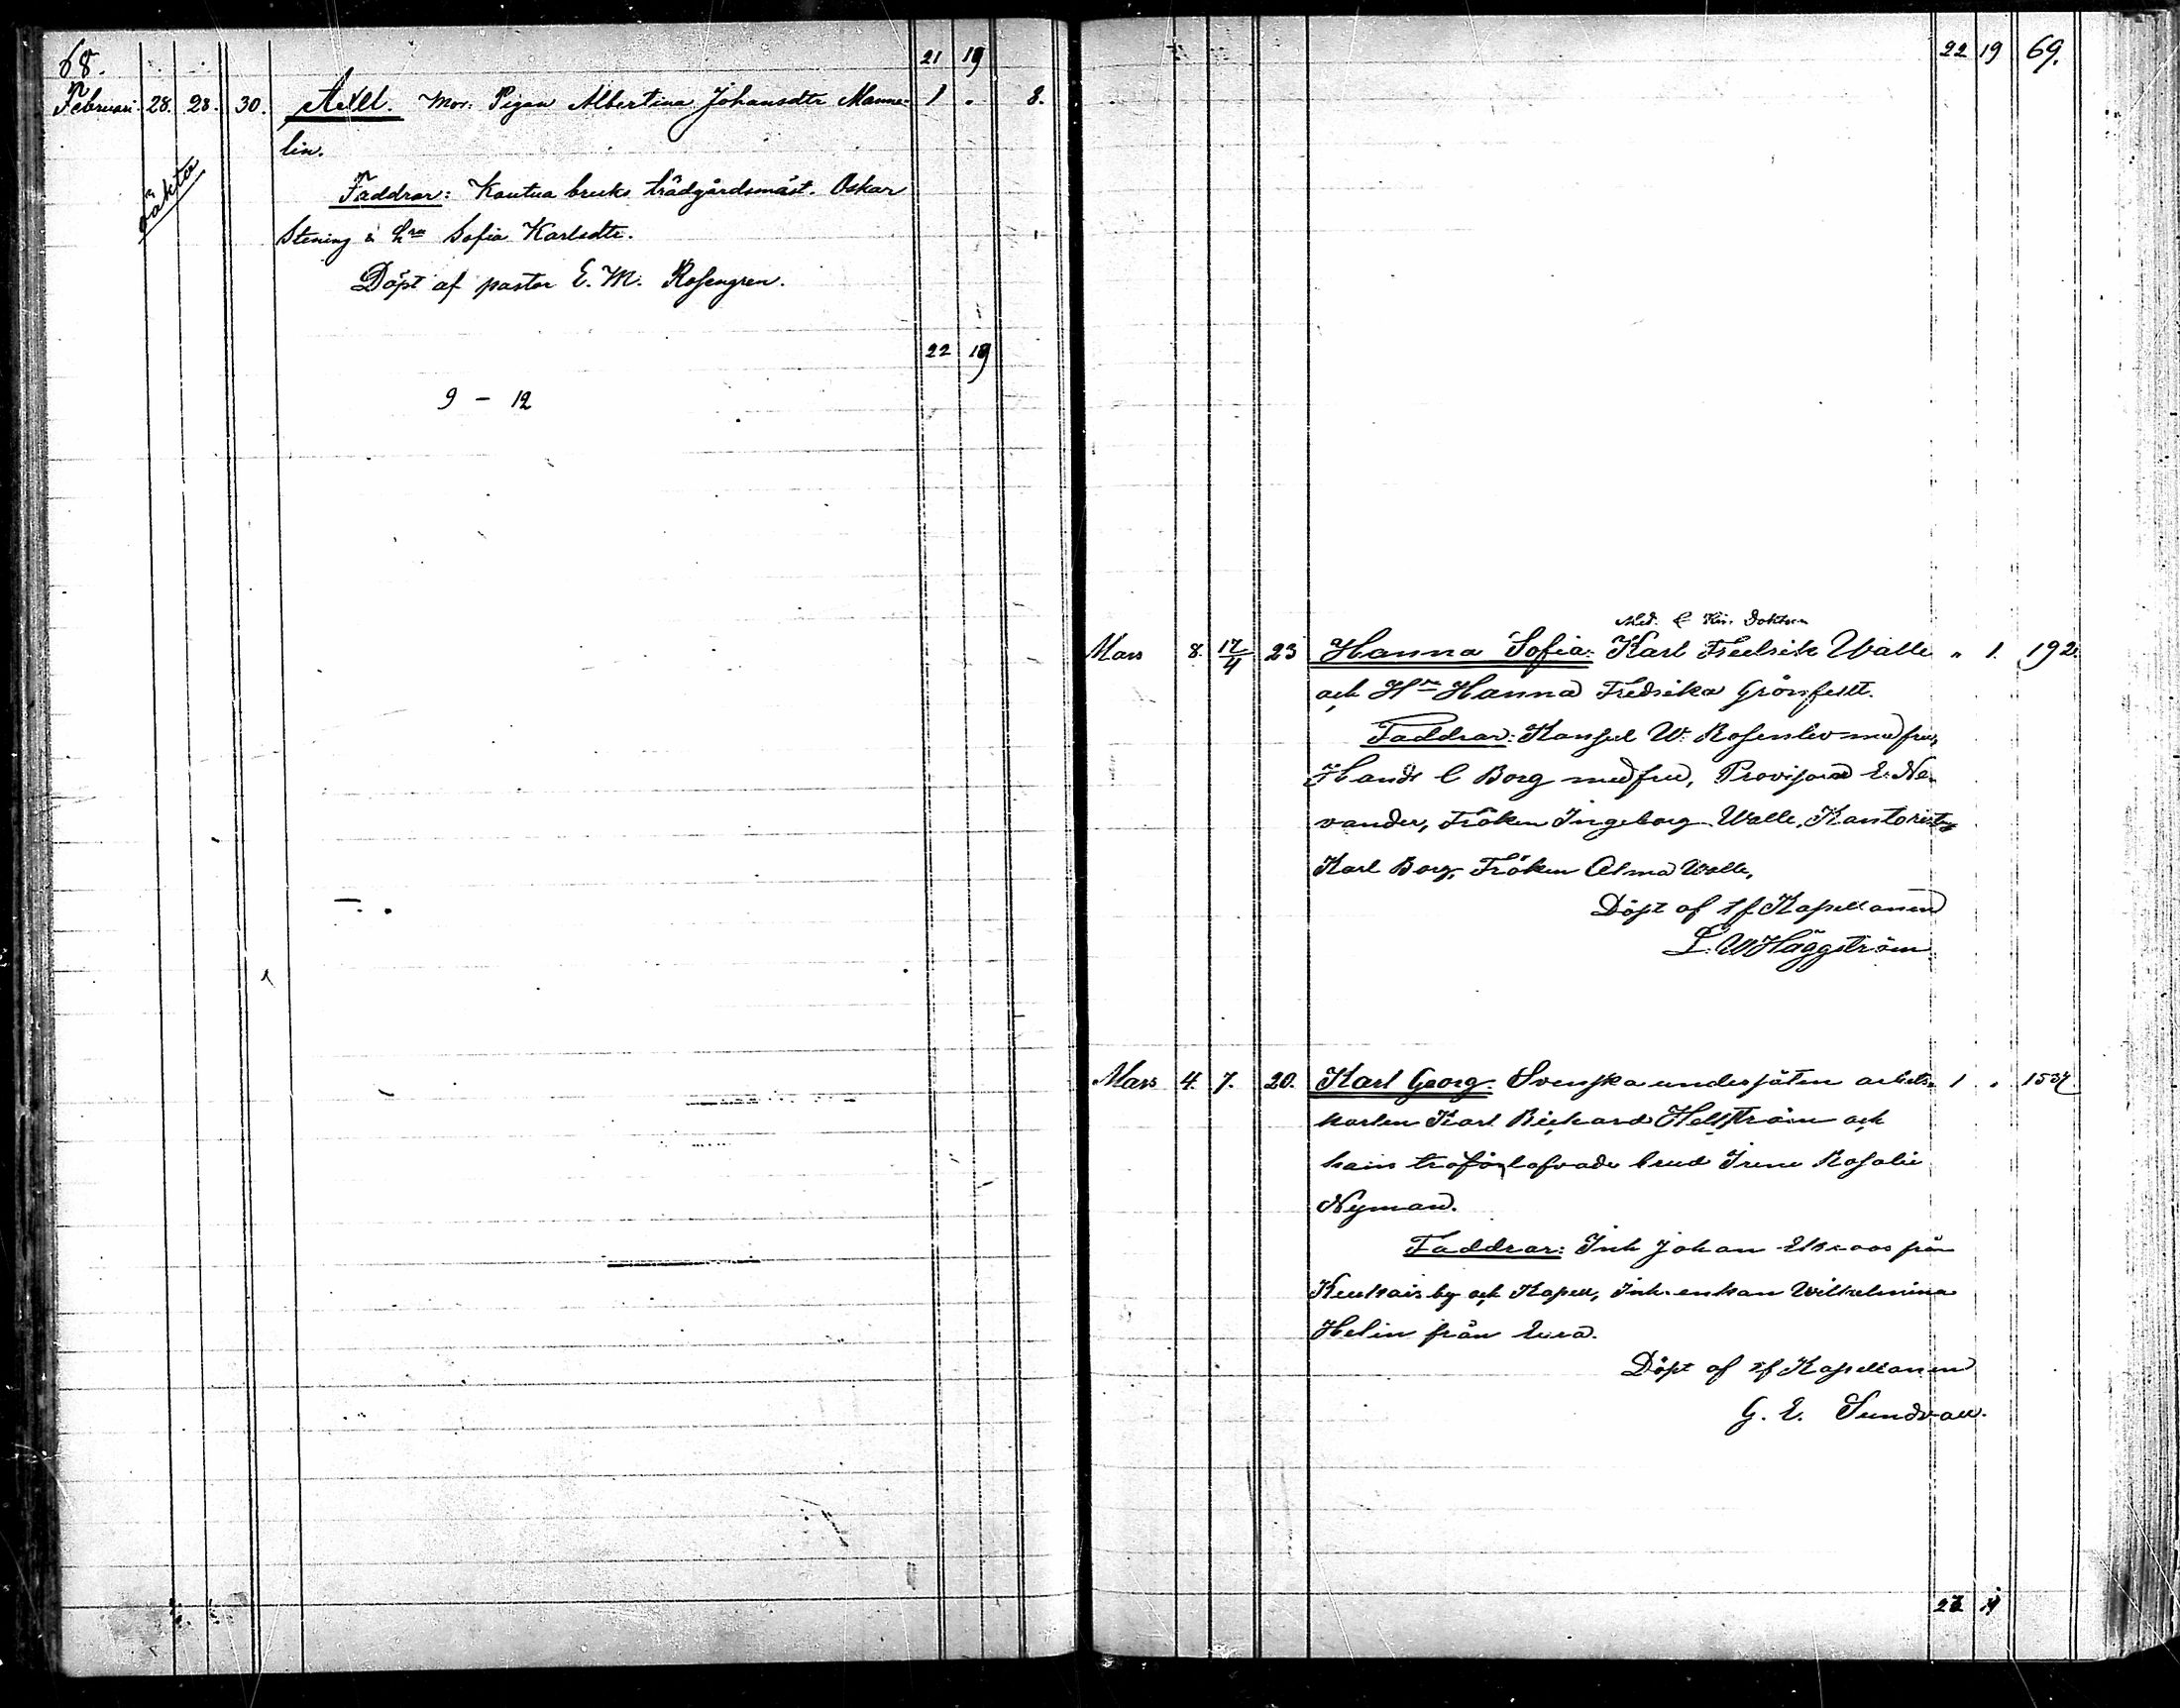 68. 21 19
Februari 28. 28. 30. Axel. Mor: Pigan Albertina Johansdtr Manne- 1 . 8.
lin.
oäkta
Faddrar: Kautua bruks trädgårdsmäst. Oskar
Stening & hru Sofia Karlsdtr.
Döpt af pastor E. M. Rosengren.
22 19
9 - 12
22 19 69.
Med. & Kir. Doktorn
Mars 8. 17/4 23 Hanna Sofia: Karl Fredrik Walle " 1. 192.
och Hru Hanna Fredrika Grönfeldt.
Faddrar: Konsul W. Rosenlew med fru,
Handl C Borg med fru, Provisorn E. Ne-
vander, Fröken Ingeborg Walle, Kantoristen
Karl Borg, Fröken Alma Walle,
Döpt af tf Kapellanen
L. W Häggström
Mars 4. 7. 20. Karl Georg. Svenska undersåten arbets- 1 " 1537
karlen Karl Richard Hellström och
hans troförlofvade brud Irene Rosalie
Nyman.
Faddrar: Inh Johan från
by och Kapell, Inh. enkan Wilhelmina
Helin från Eura.
Döpt af tf Kapellanen
G. E. Sundvall.